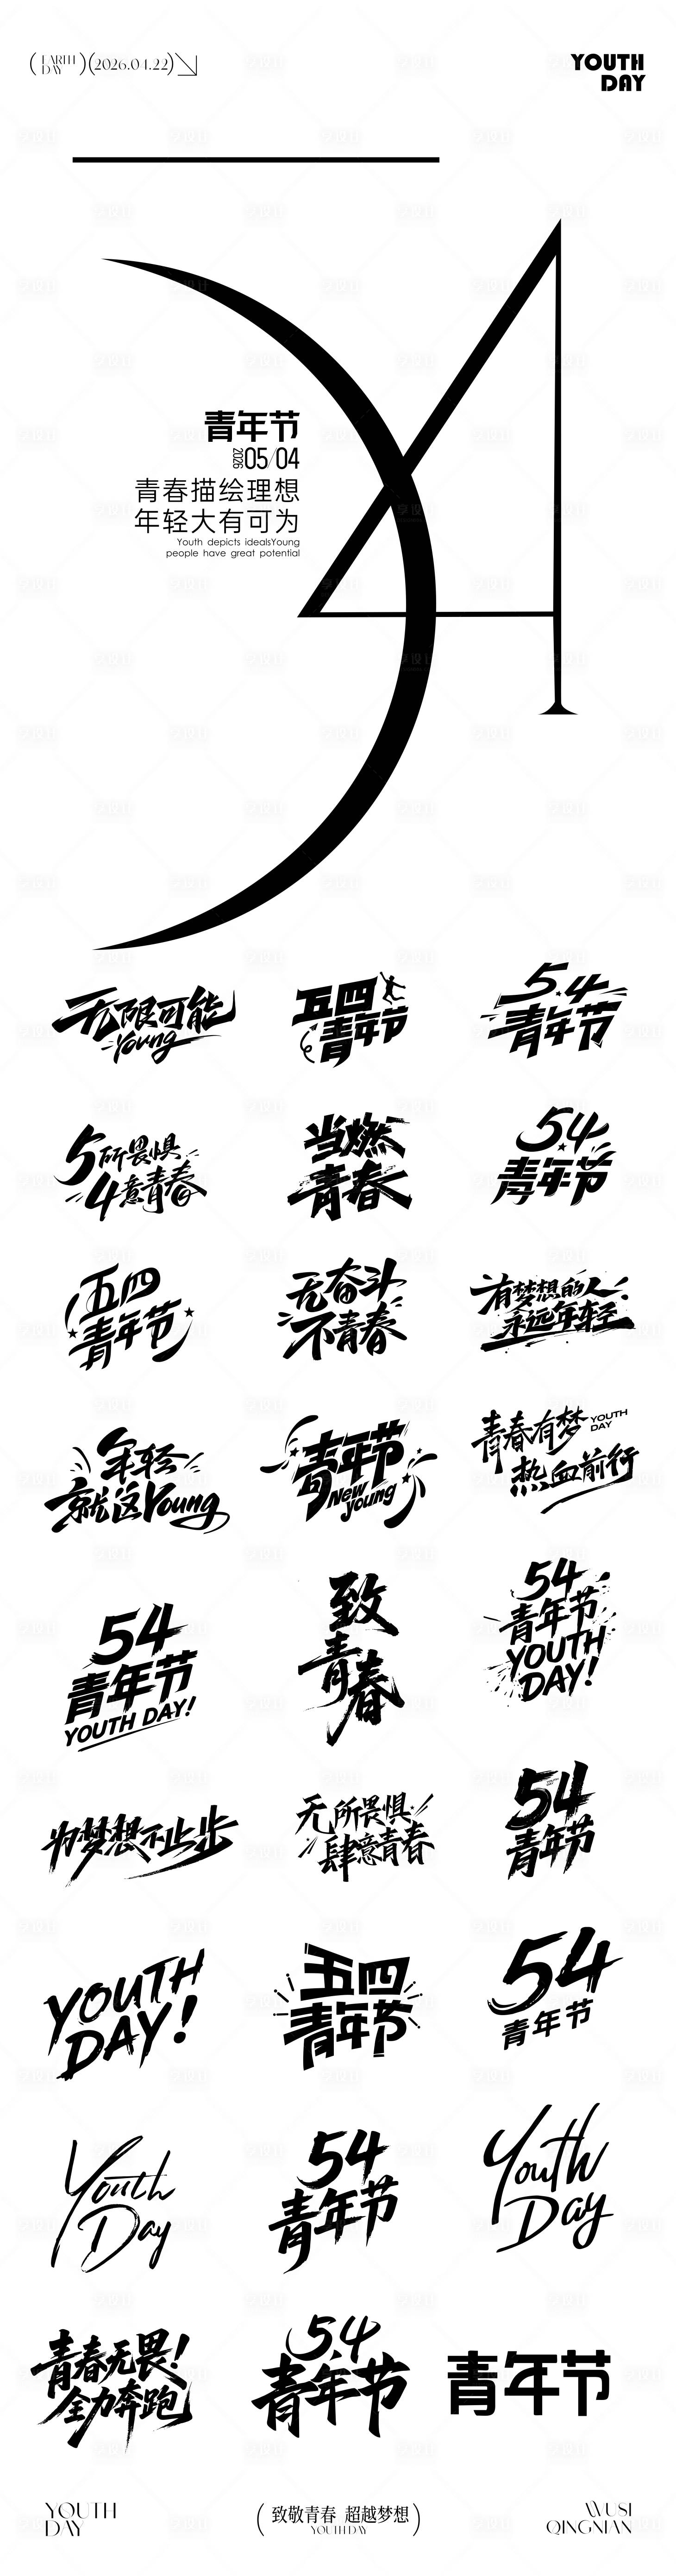 (EARTH DAY)(2026.04.22)
YOUTH
DAY
54
青年节
2026 05/04
青春描绘理想
年轻大有可为
Youth depicts idealsYoung
people have great potential
无限可能
Young
五四
青年节
5.4
青年节
5所畏惧
4意青春
当燃
青春
54
青年节
五四
青年节
无奋斗
不青春
有梦想的人
永远年轻
年轻
就这Young
青年节
New
young
青春有梦
YOUTH
DAY
热血前行
54
青年节
YOUTH DAY!
致
青春
54
青年节
YOUTH
DAY!
为梦想不止步
无所畏惧
肆意青春
54
青年节
YOUTH
DAY!
五四
青年节
54
青年节
Youth
Day
54
青年节
Youth
Day
青春无畏!
全力奔跑
5.4
青年节
青年节
YOUTH
DAY
(致敬青春 超越梦想)
YOUTH DAY
WUSI
QINGNIAN
享设计